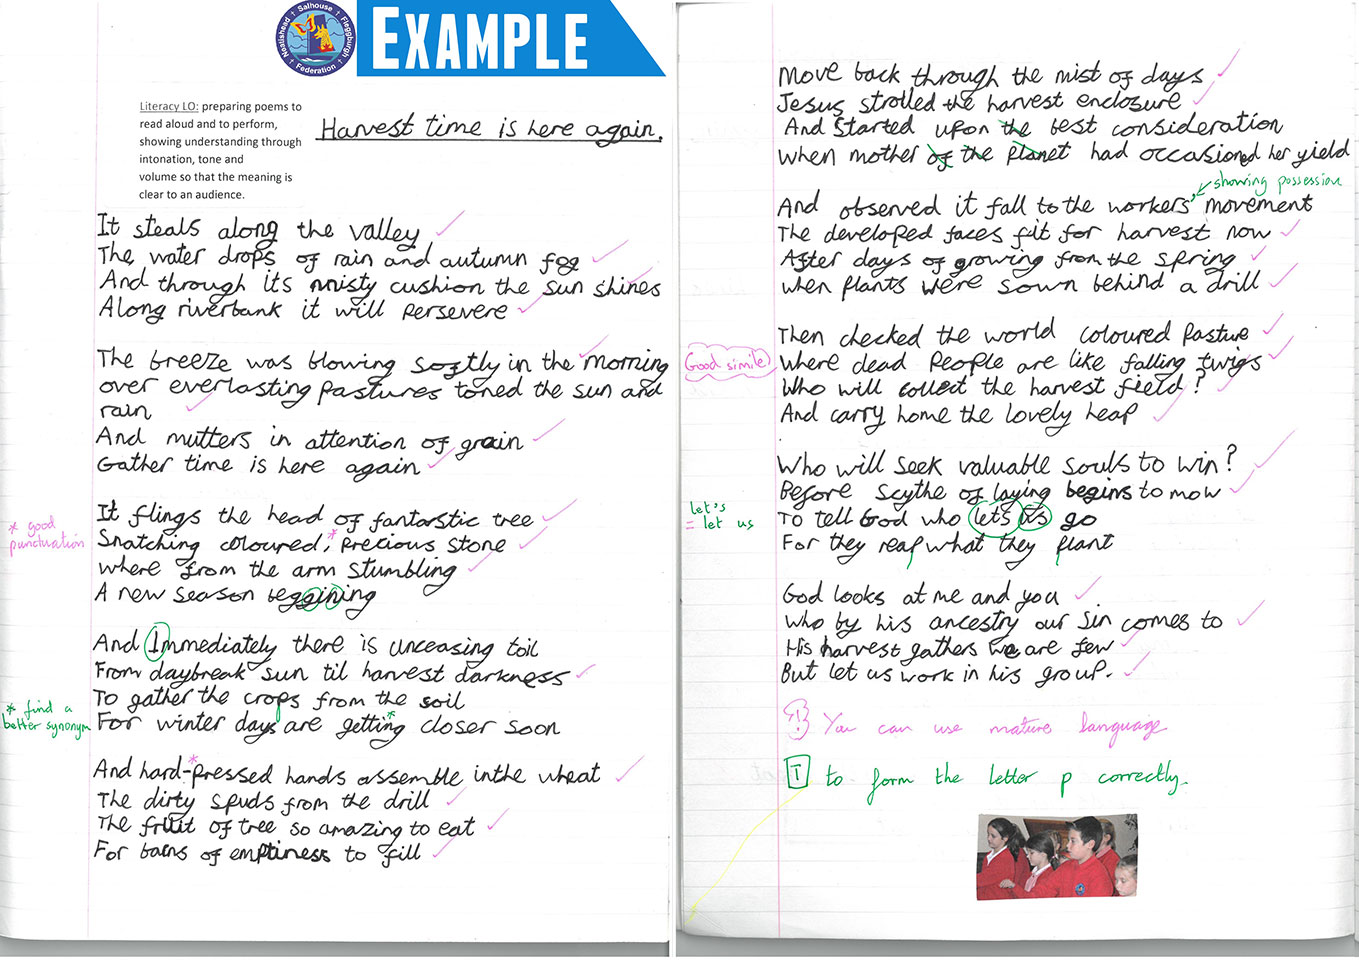 Salhouse
Neatishead
Fleggburgh
Federation
EXAMPLE
Literacy LO: preparing poems to
read aloud and to perform,
showing understanding through
intonation, tone and
volume so that the meaning is
clear to an audience.
Harvest time is here again.
It steals along the valley
The water drops of rain and autumn fog
And through its misty cushion the sun shines
Along riverbank it will persevere
The breeze was blowing softly in the morning
over everlasting pastures toned the sun and
rain
And mutters in attention of grain
Gather time is here again
* good
punctuation
It flings the head of fantastic tree
Snatching coloured, * precious stone
where from the arm stumbling
A new season beggining
And Immediately there is unceasing toil
From daybreak sun til harvest darkness
To gather the crops from the soil
* find a
better synonym
For winter days are getting * closer soon
And hard-*pressed hands assemble in the wheat
The dirty spuds from the drill
The fruit of tree so amazing to eat
For barns of emptiness to fill
Move back through the mist of days
Jesus strolled the harvest enclosure
And started upon the best consideration
When mother of the planet had occasioned her yield
showing possession
And observed it fall to the workers' movement
The developed faces fit for harvest now
After days of growing from the spring
when plants were sown behind a drill
Then checked the world coloured pasture
Good simile
Where dead people are like falling twigs
Who will collect the harvest field?
And carry home the lovely heap
Who will seek valuable souls to win?
Before scythe of laying begins to mow
let's
= let us
To tell God who let's us go
For they reap what they plant
God looks at me and you
who by his ancestry our sin comes to
His harvest gathers we are few
But let us work in his group.
! You can use mature language
T to form the letter p correctly.